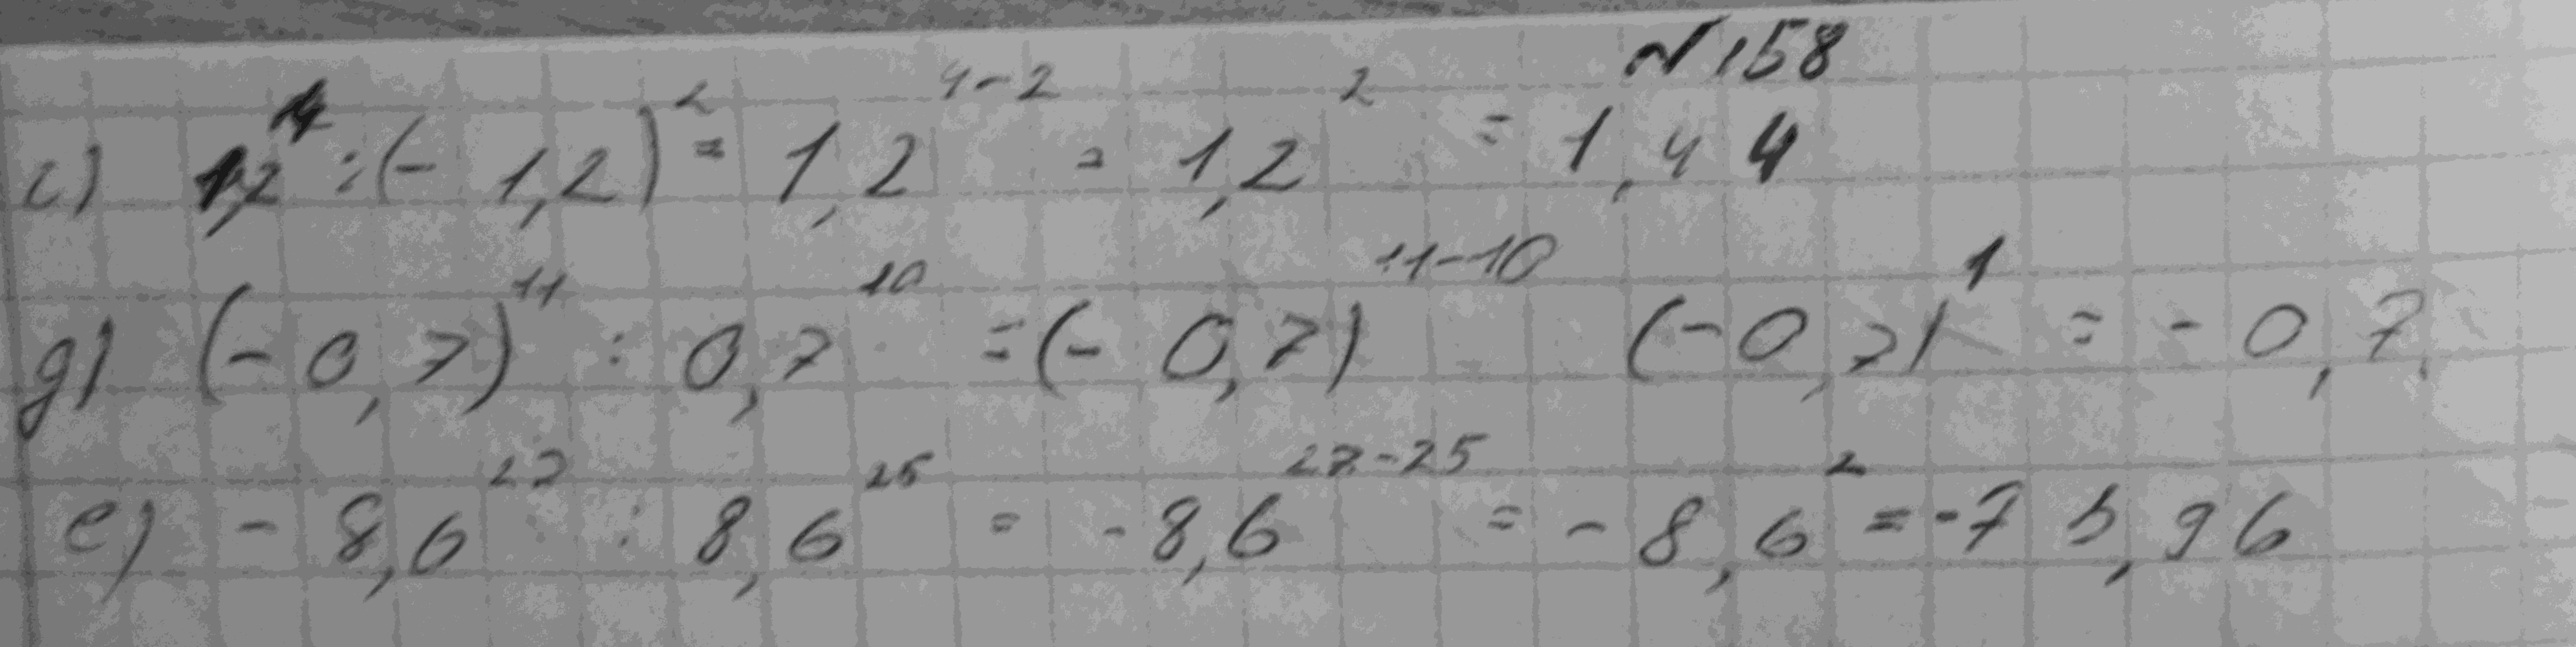 №158
c) 1,2⁴ : (- 1,2)² = 1,2⁴⁻² = 1,2² = 1,44
g) (- 0,7)¹¹ : 0,7¹⁰ = (- 0,7)¹¹⁻¹⁰ (- 0,7)¹ = - 0,7
e) - 8,6²⁷ : 8,6²⁵ = - 8,6²⁷⁻²⁵ = - 8,6² = - 73,96